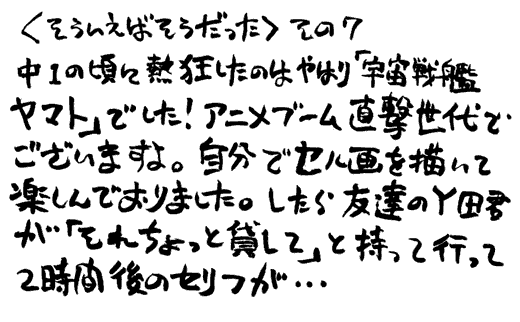 〈そういえばそうだった〉その7
中1の頃に熱狂したのはやはり「宇宙戦艦
ヤマト」でした！アニメブーム直撃世代で
ございますよ。自分でセル画を描いて
楽しんでおりました。したら友達のY田君
が「それちょっと貸して」と持って行って
2時間後のセリフが…